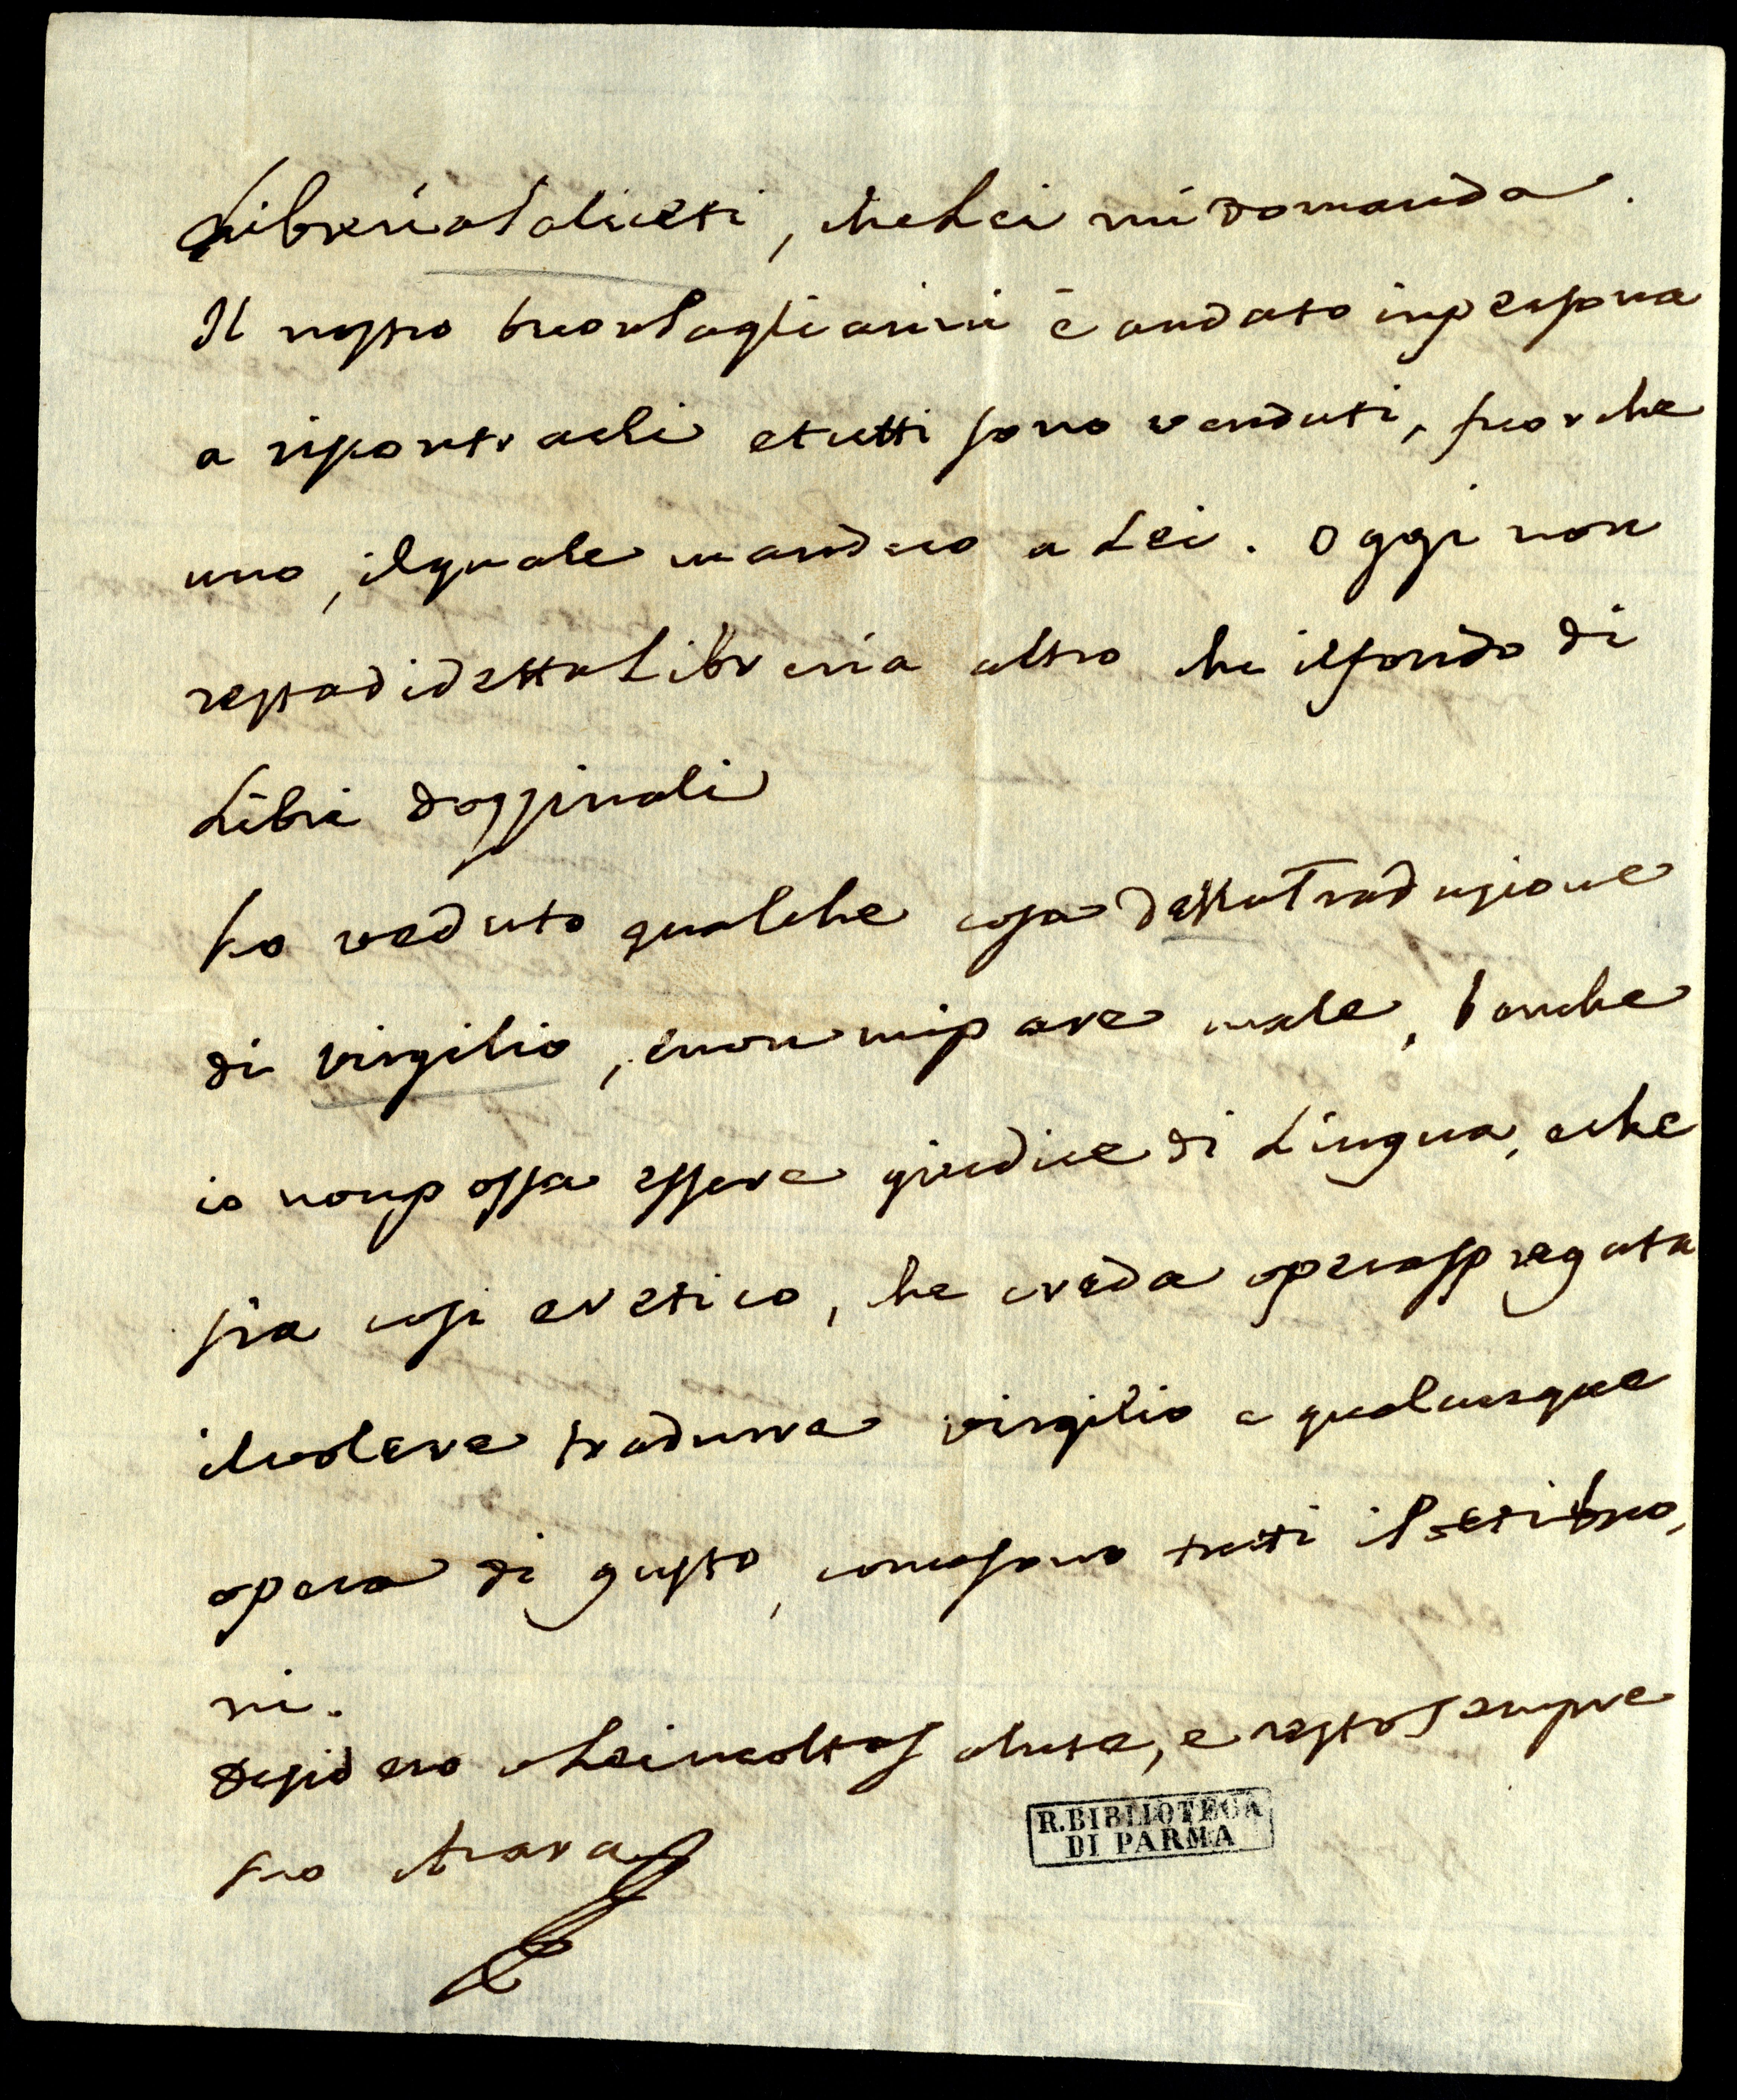 Libreria Saliceti, che Lei mi domanda.
Il nostro buon Pagliarini è andato in persona
a riscontrarli e tutti sono venduti, fuorche
uno, il quale mandero a Lei. Oggi non
resta di detta Libreria altro che il fondo di
Libri dozzinali
ho veduto qualche cosa della Traduzione
di Virgilio, e non mi pare male, benche
io non possa essere giudice di Lingua, e che
sia cosi eretico, che creda opera spregata
il volere tradurre Virgilio e qualunque
opera di gusto, come sono tutti i
ni.
Desidero a Lei molta salute, e resto sempre
suo Azara
R. BIBLIOTECA
DI PARMA